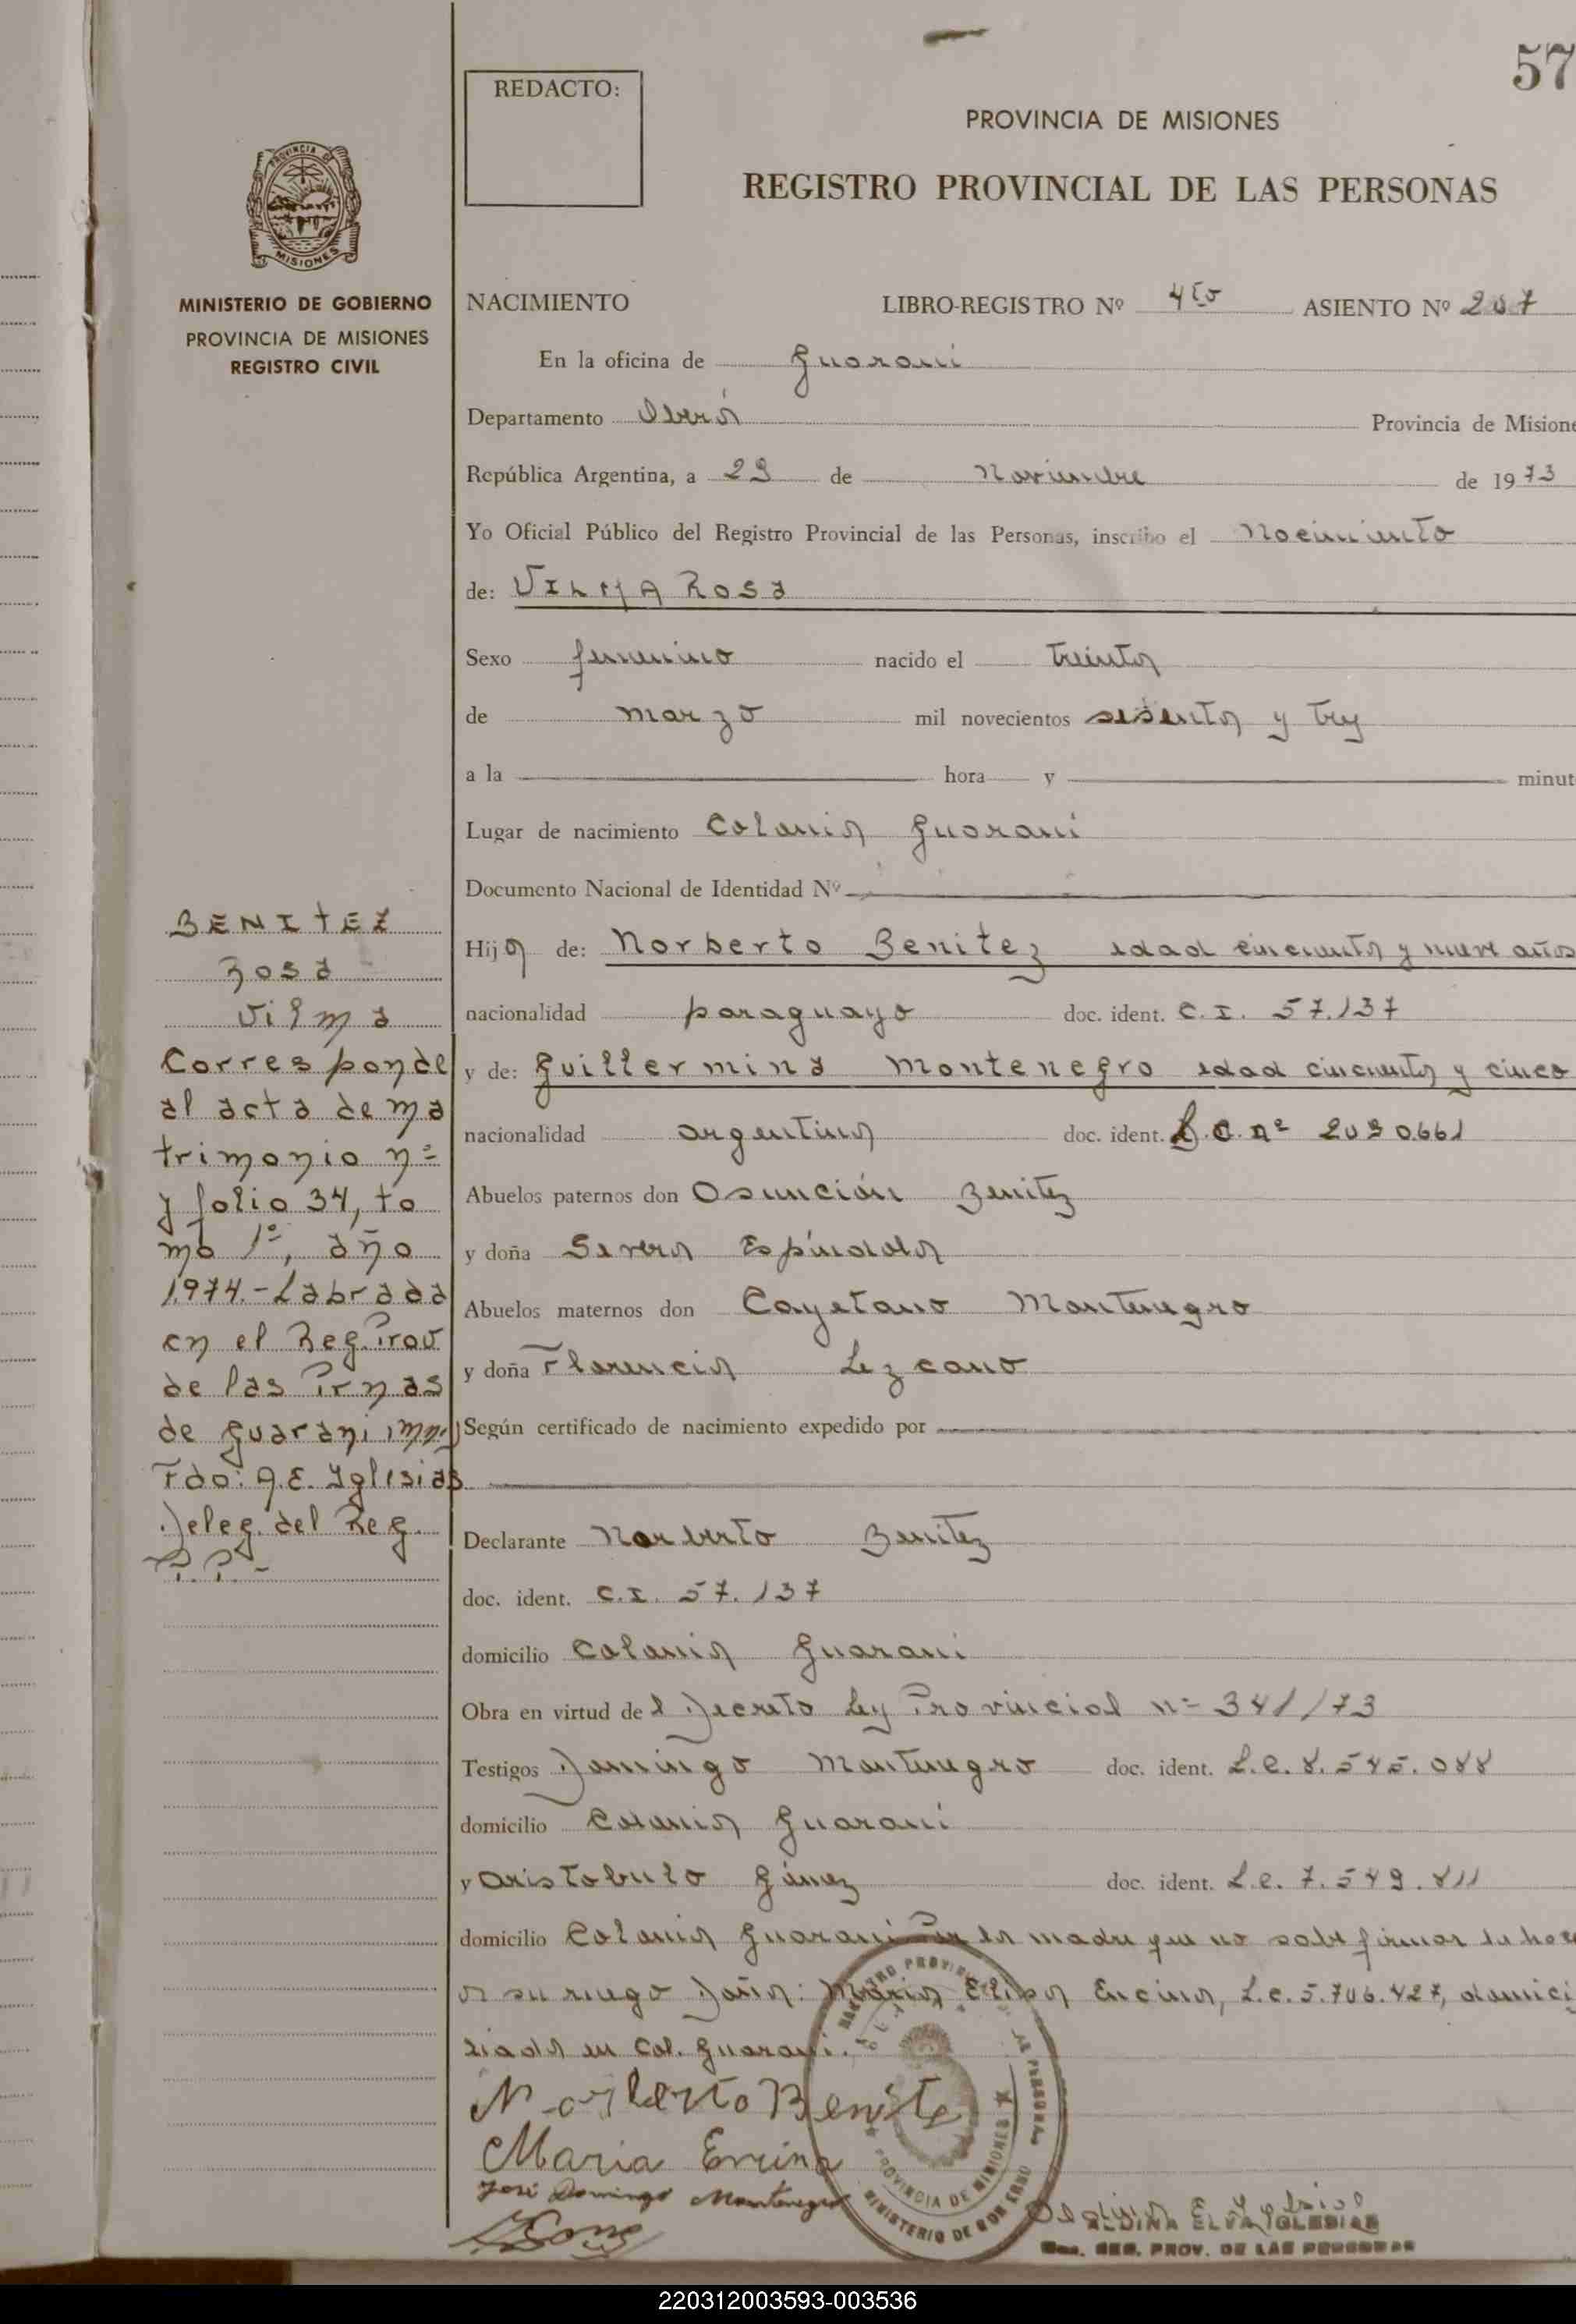 57
REDACTO:
PROVINCIA DE MISIONES
REGISTRO PROVINCIAL DE LAS PERSONAS
PROVINCIA DE
MISIONES
MINISTERIO DE GOBIERNO
PROVINCIA DE MISIONES
REGISTRO CIVIL
NACIMIENTO LIBRO-REGISTRO Nº 4to ASIENTO Nº 207
En la oficina de Guaraní
Departamento Oberá Provincia de Misione
República Argentina, a 29 de Noviembre de 1973
Yo Oficial Público del Registro Provincial de las Personas, inscribo el Nacimiento
de: VILMA ROSA
Sexo femenino nacido el treinta
de marzo mil novecientos sesenta y tres
a la hora y minut
Lugar de nacimiento Colonia Guaraní
Documento Nacional de Identidad Nº
Hija de: Norberto Benitez edad cincuenta y nueve años
nacionalidad paraguaya doc. ident. C.I. 57.137
y de: Guillermina Montenegro edad cincuenta y cinco
nacionalidad argentina doc. ident. L.C. nº 2030661
Abuelos paternos don Asunción Benitez
y doña Severa Espíndola
Abuelos maternos don Cayetano Montenegro
y doña Florencia Lezcano
Según certificado de nacimiento expedido por
Declarante Norberto Benitez
doc. ident. C.I. 57.137
domicilio Colonia Guaraní
Obra en virtud del Decreto Ley Provincial nº 341/73
Testigos Domingo Montenegro doc. ident. L.E. 8.545.088
domicilio Colonia Guaraní
y Aristobulo Gimez doc. ident. L.E. 7.549.811
domicilio Colonia Guaraní Por la madre que no sabe firmar lo hace
a su ruego Doña: María Elisa Encina, L.C. 5.706.427, domici
liada en Col. Guaraní.
Norberto Benitez
Maria Encina
José Domingo Montenegro
ALDINA ELVA IGLESIAS
REG. PROV. DE LAS PERSONAS
PROVINCIA DE MISIONES
MINISTERIO DE GOBIERNO
BENITEZ
Rosa
Vilma
Corresponde
al acta de ma
trimonio nº
y folio 34, to
mo 1º, año
1974.- Labrada
en el Reg. Prov
de las Prnas
de Guaraní, mnes
Fdo: A.E. Iglesias
Deleg. del Reg.
P.P.-
220312003593-003536